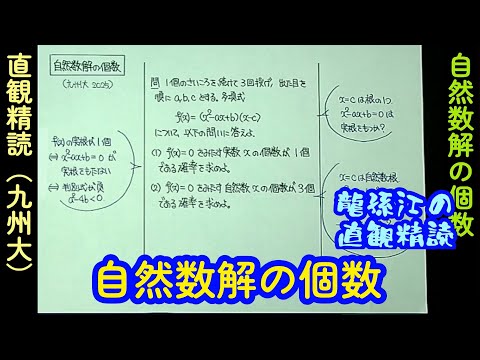 直観精読（九州大）
自然数解の個数
（九州大 2025）
f(x)の実根が1個
⇔ x²-ax+b=0 が
実根をもたない
⇔ 判別式が負
a²-4b<0
問 1個のさいころを続けて3回投げ、出た目を
順に a, b, c とする。多項式
f(x)=(x²-ax+b)(x-c)
について、以下の問いに答えよ。
(1) f(x)=0 をみたす実数 x の個数が 1個
である確率を求めよ。
(2) f(x)=0 をみたす自然数 x の個数が 3個
である確率を求めよ。
x=c は根の1つ
x²-ax+b=0 は
実根をもつか?
x=c は自然数根
自然数解の個数
龍孫江の
直観精読
自然数解の個数